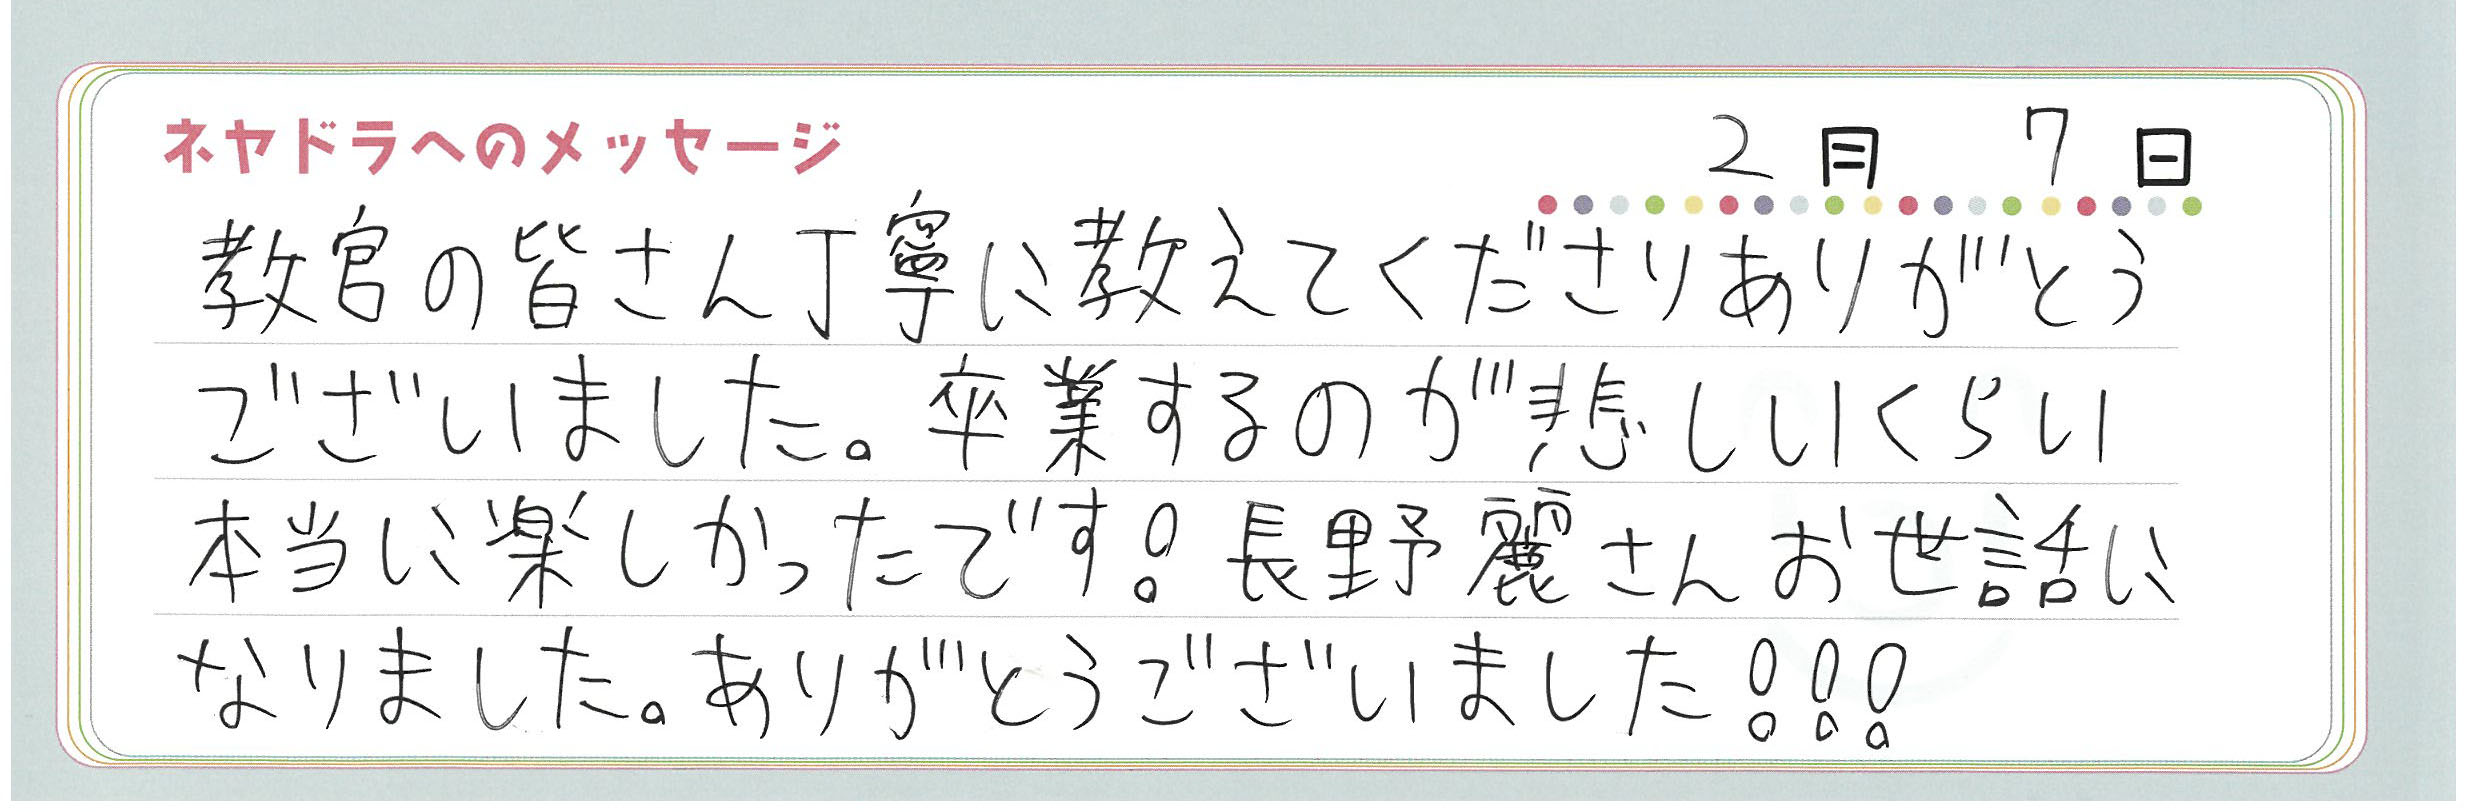 ネヤドラへのメッセージ
2月 7日
教官の皆さん丁寧に教えてくださりありがとう
ございました。卒業するのが悲しいくらい
本当に楽しかったです!長野麗さんお世話に
なりました。ありがとうございました!!!